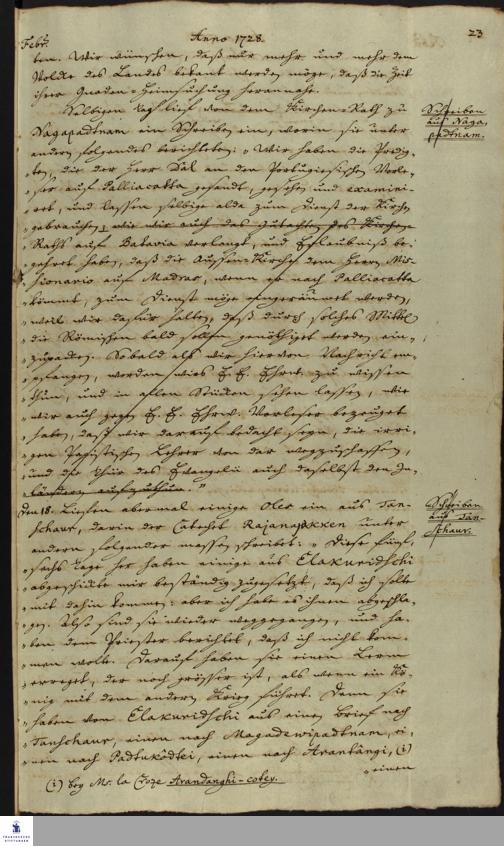 Febr. Anno 1728. 23
ten. Wir wünschen, daß nur mehr und mehr dem
Volcke des Landes bekant werden möge, daß die Zeit
ihrer Gnaden-Heimsuchung herannahe.
Selbigen Tag lief von dem Kirchen-Rath zu
Nagapadtnam ein Schreiben ein, worin sie unter
andern folgendes berichteten: „Wir haben die Predig-
„ten, die der Herr Dal an den Portugiesischen Vorle-
„ser auf Palliacatta gesandt, gesehen und examini-
„ret, und lassen selbige alda zum Dienst der Kirche
„gebrauchen, wie wir auch das Gutachten des Kirchen-
„Raths auf Batavia verlangt, und Erlaubniß be-
„gehret haben, daß die Aussen-Kirche dem Herrn Mis-
„sionario auf Madras, wenn er nach Palliacatta
„kömmt, zum Dienst möge eingeräumet werden,
„weil wir dafür halten, daß durch solches Mittel
„die Römischen bald sollen genöthiget werden ein-
„zupacken. Sobald als wir hiervon Nachricht em-
„pfangen, werden wirs E. E. Ehrw. zu wissen
„thun, und in allen Stücken sehen lassen, wie
„wir auch gegen E. E. Ehrw. Vorleser bezeuget
„haben, daß wir darauf bedacht seyn, die irri-
„gen Papistischen Lehrer von dar wegzuschaffen,
„und die Thür des Evangelii auch daselbst den In-
„ländern aufzuthun.“
Schreiben
aus Naga-
padtnam.
Den 18. Liefen abermal einige Oles ein aus Tan-
schaur, darin der Catechet Rajanajakken unter
andern folgender massen schreibet: „Diese fünf,
„sechs Tage her haben einige aus Elakuridschi
„abgeschickte mir beständig zugesetzt, daß ich solte
„mit dahin kommen: aber ich habe es ihnen abgeschla-
„gen. Also sind sie wieder weggegangen, und ha-
„ben dem Priester berichtet, daß ich nicht kom-
„men wolte. Darauf haben sie einen Lerm
„erreget, der noch grösser ist, als wenn ein Kö-
„nig mit dem andern Krieg führet. Denn sie
„haben von Elakuridschi aus einen Brief nach
„Tanschaur, einen nach Magadewipadtnam, ei-
„nen nach Padtukodtei, einen nach Arantângi, (i)
„einen
Schreiben
aus Tan-
schaur.
(i) bey Mr. la Croze Arandanghi-cotey.
FRANCKESCHE
STIFTUNGEN